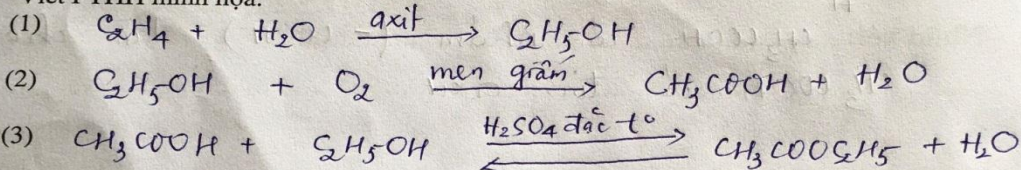 Viết PTHH minh họa.
(1) C₂H₄ + H₂O axit → C₂H₅OH
(2) C₂H₅OH + O₂ men giấm → CH₃COOH + H₂O
(3) CH₃COOH + C₂H₅OH H₂SO₄ đặc t° ⇌ CH₃COOC₂H₅ + H₂O